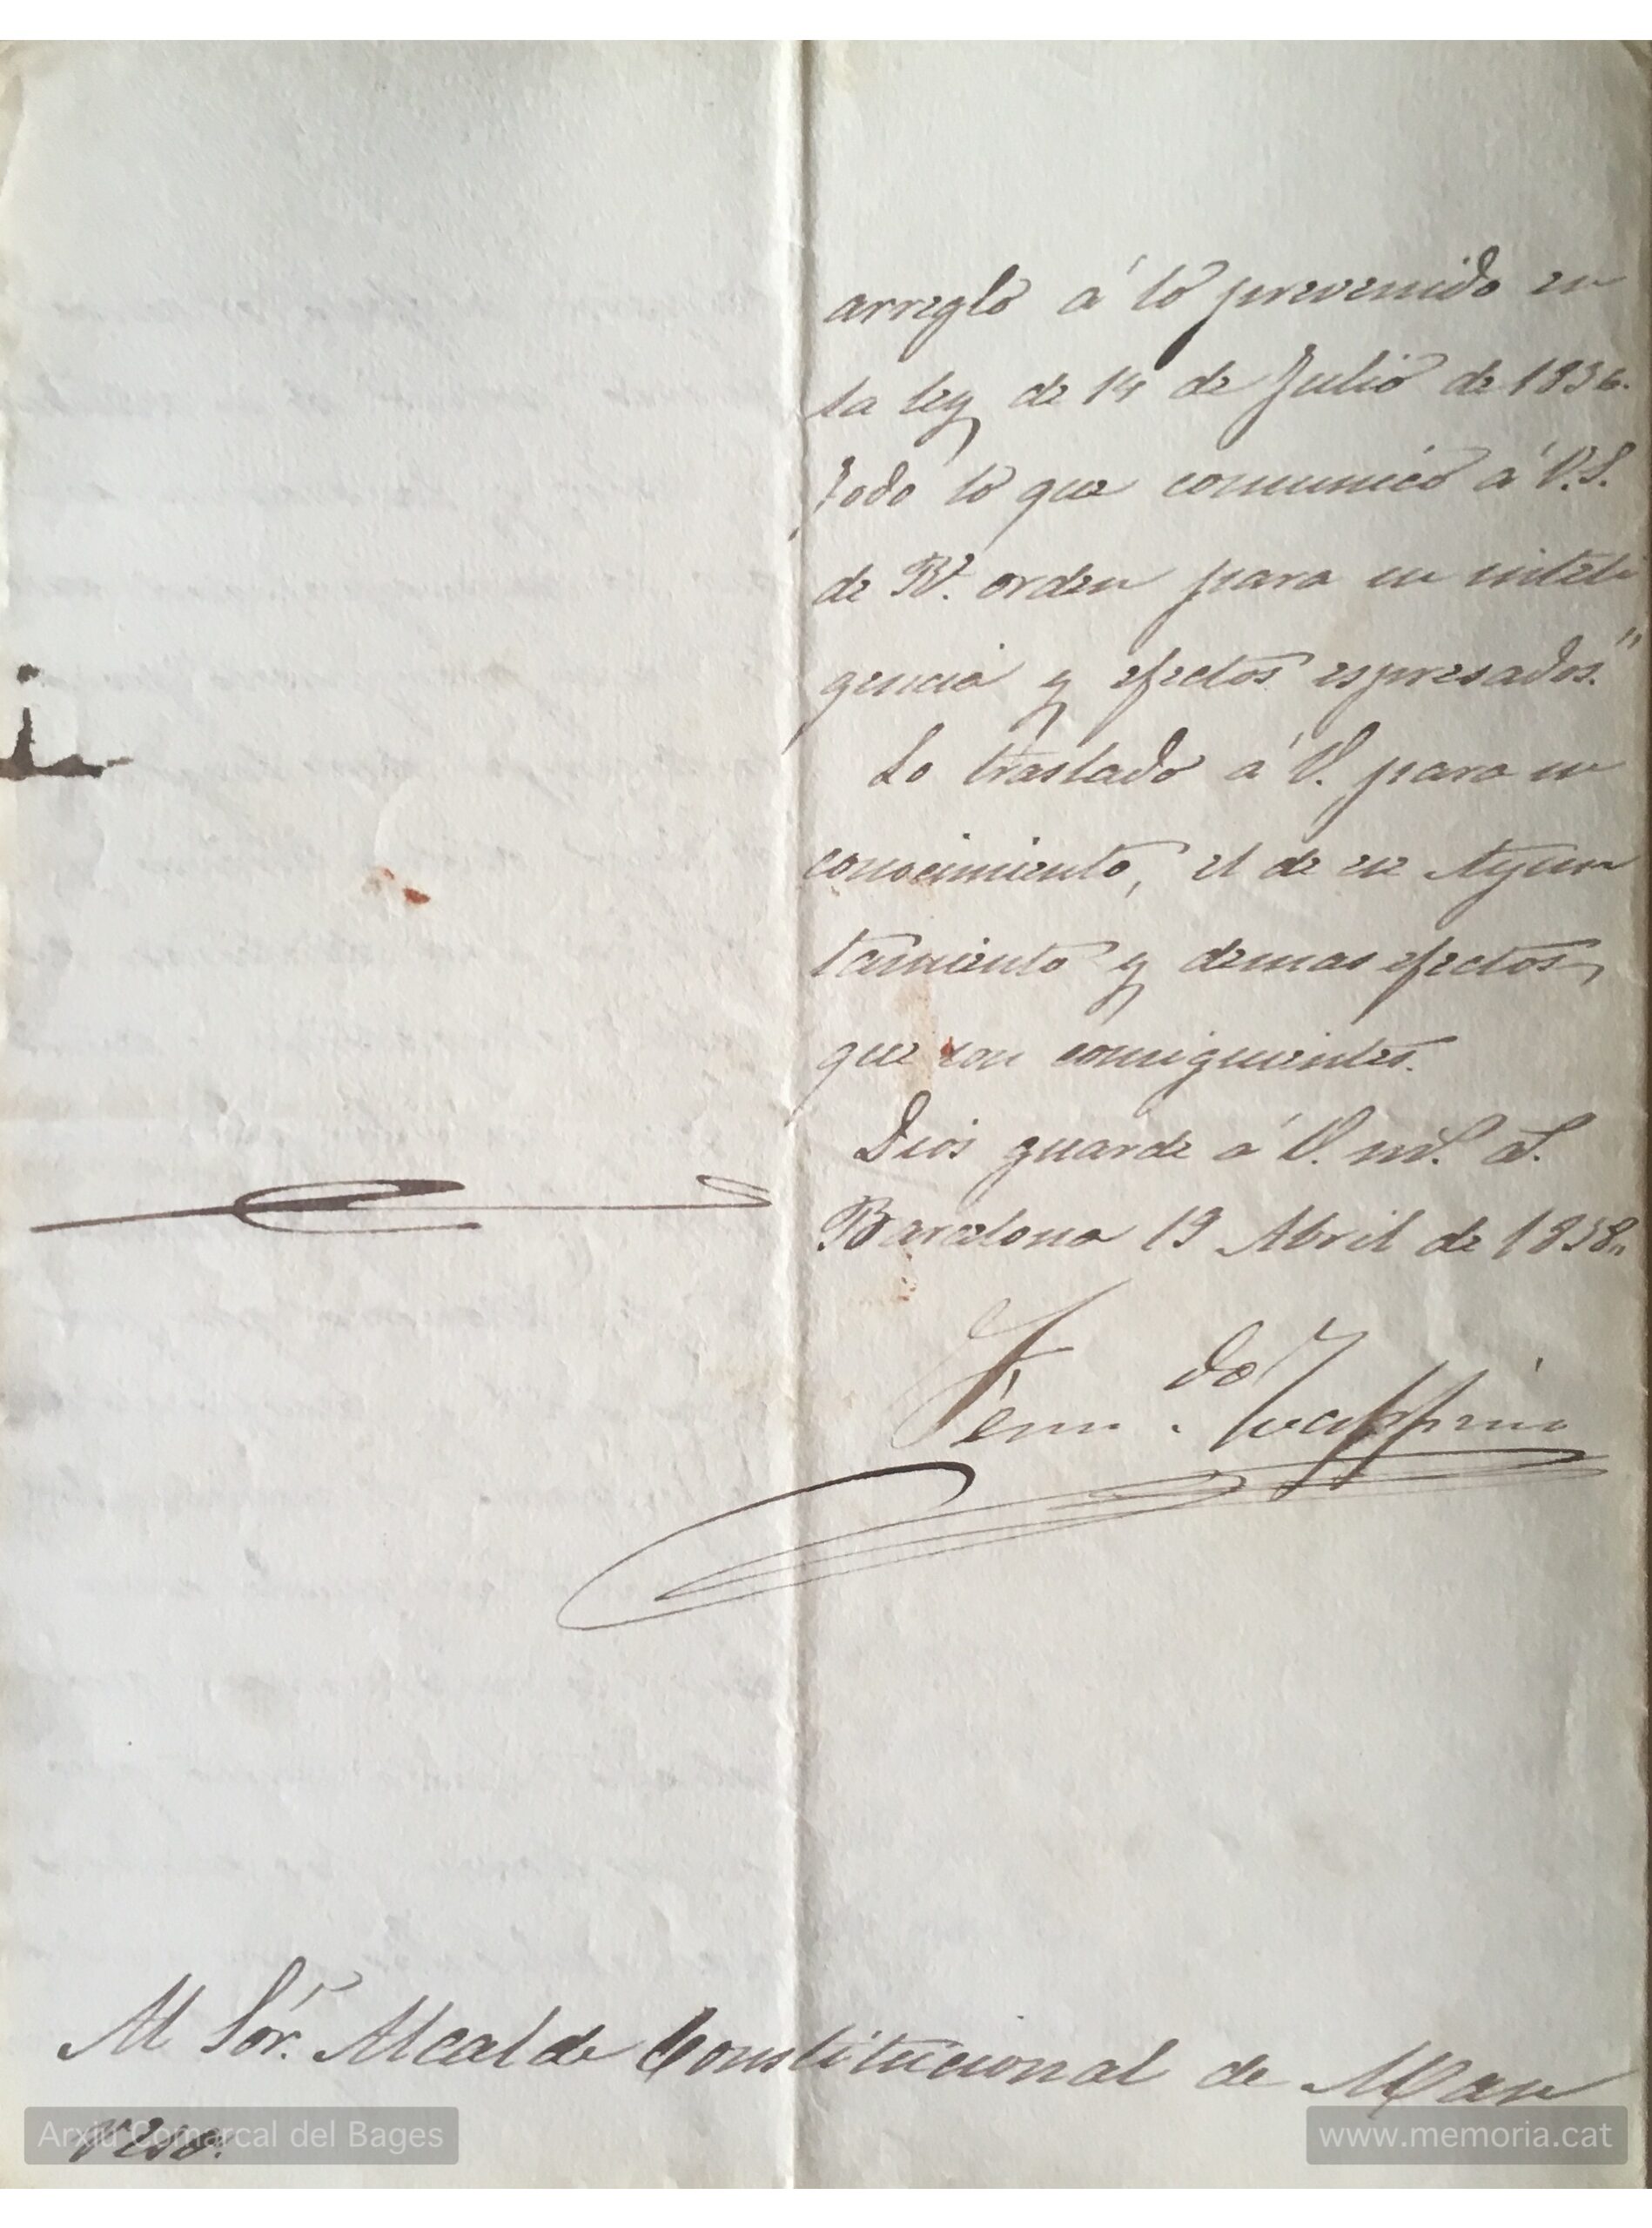 arreglo á lo prevenido en
la ley de 14 de Julio de 1836.
Todo lo que comunico á V.S.
de Rl. orden para su inteli
gencia y efectos espresados."
Lo traslado á V. para su
conocimiento, el de ese Ayun
tamiento y demas efectos
que son consiguientes.
Dios guarde á V. ms. as.
Barcelona 19 Abril de 1838.
Fern.do
Al Sor. Alcalde Constitucional de Man
resa.
Arxiu Comarcal del Bages
www.memoria.cat